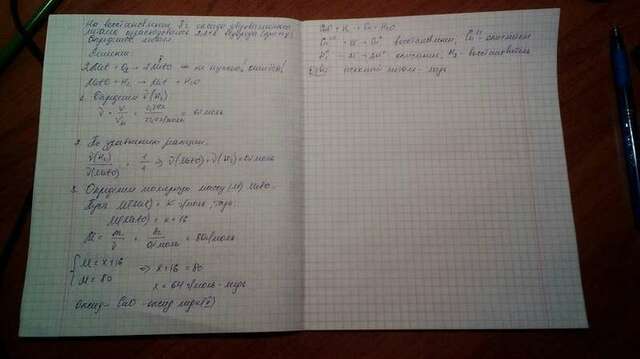 На восстановление 8г оксида двухвалентного
металла израсходовано 2,24л водорода (при н.у.)
Определите металл.
Решение:
2Met + O₂ → 2MetO
MetO + H₂ → Met + H₂O
1. Определим ν(H₂)
ν = V/Vm = 2,24л/22,4л/моль = 0,1 моль
2. По уравнению реакции:
ν(H₂)/ν(MetO) = 1/1 ⇒ ν(MetO) = ν(H₂) = 0,1 моль
3. Определим молярную массу (M) MetO.
M(Met) = x г/моль, тогда
M(MetO) = x + 16
M = m/ν = 8г/0,1моль = 80г/моль
{ M = x+16
M = 80 ⇒ x+16 = 80
x = 64 г/моль - медь
оксид - CuO - оксид меди (II)
CuO + H₂ → Cu + H₂O
восстановление, окислитель
окисление, H₂ - восстановитель
металл - медь